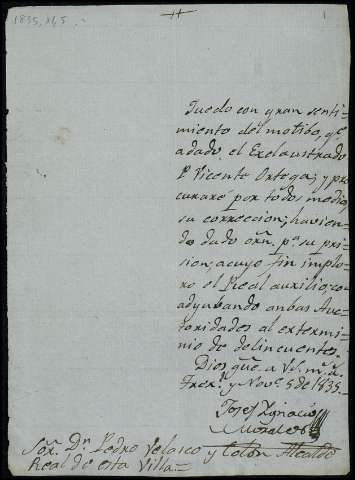 1835, 
1
Quedo con gran senti-
miento del motibo, qe.
adado, el Exclaustrado
P. Vicente Ortega; y pro
curaré por todos medios
su correccion; havien
do dado orn. pa. su pri
sion, acuyo fin implo
ro el Real auxilio; co-
adyubando anbas Auc
toridades al extermi
nio de delincuentes.
Dios gue. a VS. ms. as.
y Nove. 5 de 1835.
Josef Ygnacio
Morales
Sor. Dn. Pedro Velasco y Colon Alcalde
Real de esta Villa=